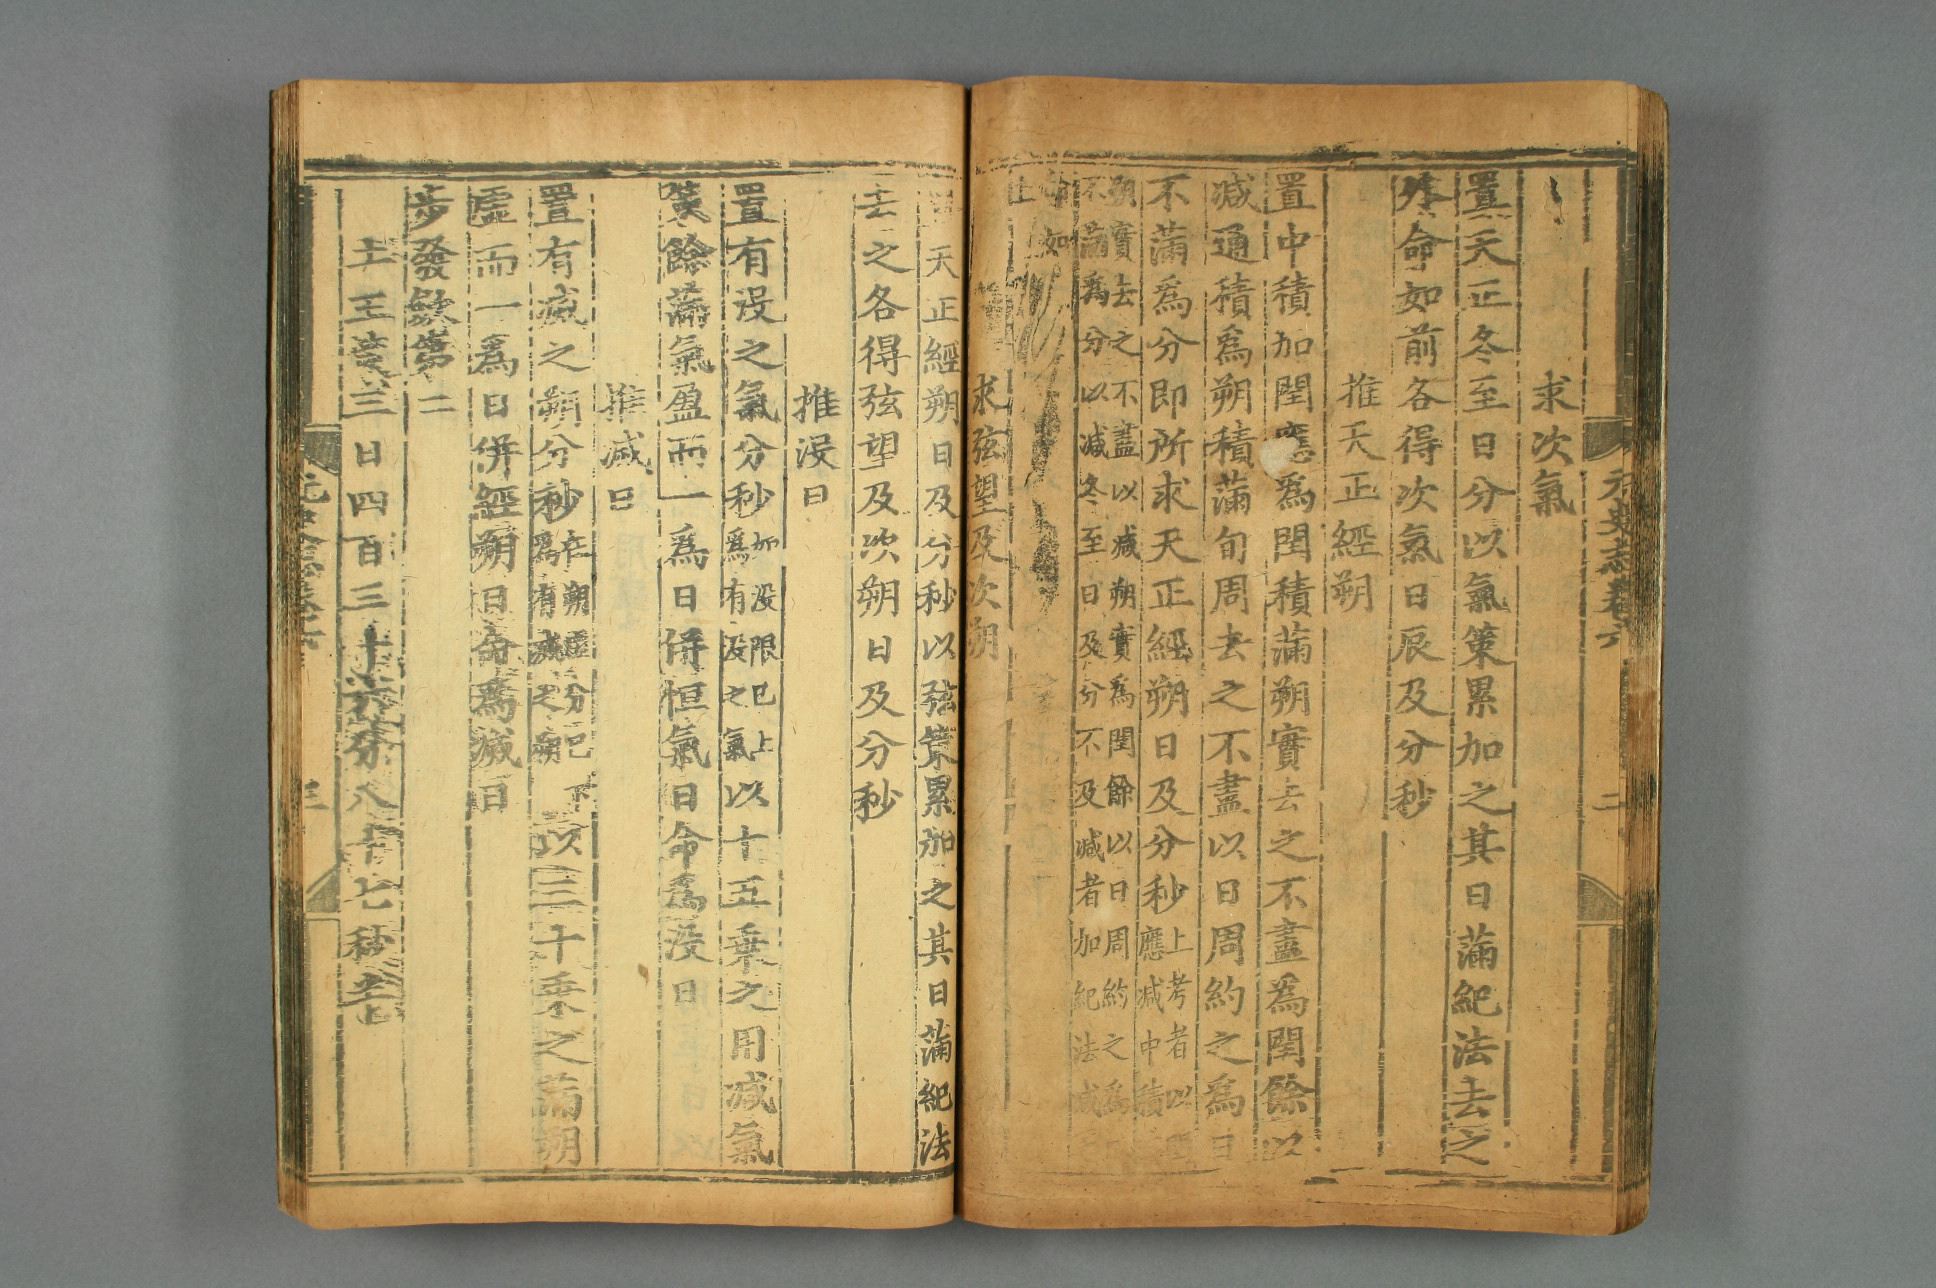 元史志卷六
二
求次氣
置天正冬至日分以氣策累加之其日滿紀法去之
外命如前各得次氣日辰及分秒
推天正經朔
置中積加閏應爲閏積滿朔實去之不盡爲閏餘以
減通積爲朔積滿旬周去之不盡以日周約之爲日
不滿爲分即所求天正經朔日及分秒
上考者以
應減中積
朔實去之不盡以減朔實爲閏餘以日周約之爲
不滿爲分以減冬至日及分不及減者加紀法減
命如
上
求弦望及次朔
天正經朔日及分秒以弦策累加之其日滿紀法
去之各得弦望及次朔日及分秒
推没日
置有没之氣分秒
如没限已上
爲有没之氣
以十五乗之用减氣
策餘滿氣盈而一爲日併恒氣日命爲没日
推减日
置有减之朔分秒
在朔虛分已下
爲有减之朔
以三十乗之滿朔
虛而一爲日併經朔日命爲减日
步發斂第二
土王策三日四百三十六分八十七秒
三